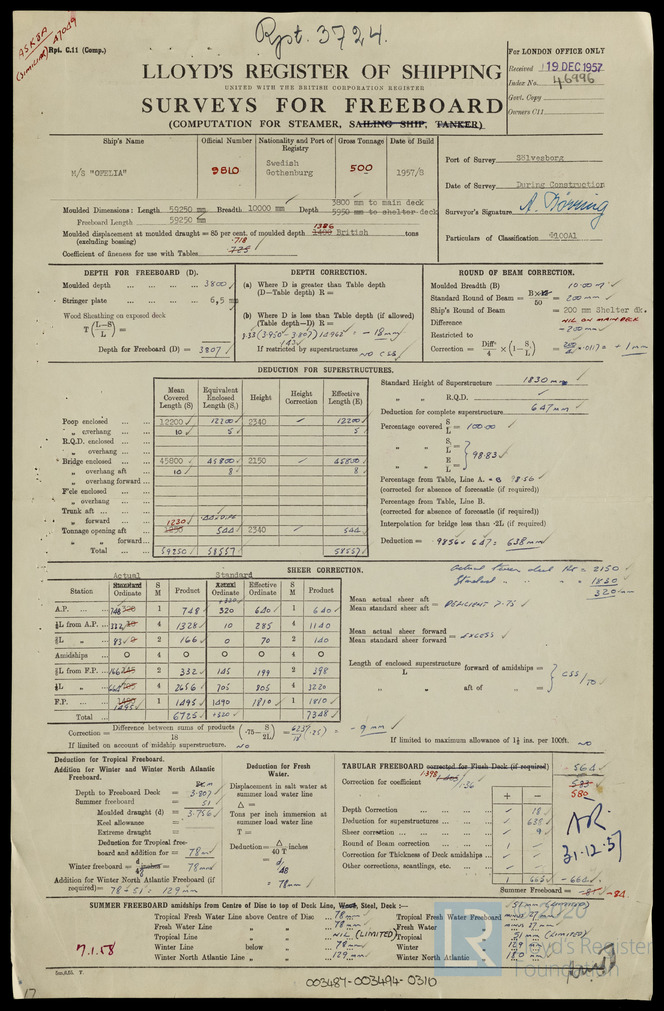 Rpt. 3724.
ASKJA
(SIMILAR) 47049
Rpt. C.11 (Comp.)
For LONDON OFFICE ONLY
Received 19 DEC 1957
Index No. 46996
Govt. Copy
Owners C11
LLOYD'S REGISTER OF SHIPPING
UNITED WITH THE BRITISH CORPORATION REGISTER
SURVEYS FOR FREEBOARD
(COMPUTATION FOR STEAMER, SAILING SHIP, TANKER)
Ship's Name Official Number Nationality and Port of Registry Gross Tonnage Date of Build
M/S "OFELIA" 9810 Swedish Gothenburg 500 1957/8
Port of Survey Sölvesborg
Date of Survey During Construction
Surveyor's Signature
Particulars of Classification
Moulded Dimensions: Length 59250 mm Breadth 10000 mm Depth 3800 mm to main deck
5950 mm to shelter deck
Freeboard Length 59250 mm
Moulded displacement at moulded draught = 85 per cent. of moulded depth 1386 British tons
(excluding bossing)
Coefficient of fineness for use with Tables .718
DEPTH FOR FREEBOARD (D).
Moulded depth 3800
Stringer plate 6,5 m
Wood Sheathing on exposed deck
T (L–S / L) =
Depth for Freeboard (D) = 3807
DEPTH CORRECTION.
(a) Where D is greater than Table depth
(D—Table depth) R =
(b) Where D is less than Table depth (if allowed)
(Table depth—D) R =
= – 18 mm
If restricted by superstructures NO CSS
ROUND OF BEAM CORRECTION.
Moulded Breadth (B) 10.00
Standard Round of Beam = B×12 / 50 = 200 mm
Ship's Round of Beam = 200 mm Shelter dk.
Difference NIL ON MAIN DECK
– 200 mm
Restricted to
Correction = Diff. / 4 × (1 – S₁ / L) = + 1 mm
DEDUCTION FOR SUPERSTRUCTURES.
Mean Covered Length (S) Equivalent Enclosed Length (S₁) Height Height Correction Effective Length (E)
Poop enclosed 12200 12200 2340 12200
" overhang 10 5 5
R.Q.D. enclosed
" overhang
Bridge enclosed 45800 45800 2150 45800
" overhang aft 10 8 8
" overhang forward
F'cle enclosed
" overhang
Trunk aft
" forward 1230
Tonnage opening aft 544 2340 544
" " forward
Total 59250 58557 58557
Standard Height of Superstructure 1830 mm
" " R.Q.D.
Deduction for complete superstructure 647 mm
Percentage covered S / L = 100.00
" " S₁ / L =
" " E / L = 98.83
Percentage from Table, Line A. 98.50
(corrected for absence of forecastle (if required))
Percentage from Table, Line B.
(corrected for absence of forecastle (if required))
Interpolation for bridge less than ·2L (if required)
Deduction = 9856 × 647 = 638 mm
SHEER CORRECTION.
Actual Standard
Station Standard Ordinate S M Product Actual Ordinate Effective Ordinate S M Product
A.P. 748 1 748 320 640 1 640
⅙L from A.P. 332 4 1328 10 285 4 1140
⅓L " 83 2 166 0 70 2 140
Amidships 0 4 0 0 0 4 0
⅓L from F.P. 166 2 332 145 199 2 398
⅙L " 664 4 2656 705 805 4 3220
F.P. 1495 1 1495 1490 1810 1 1810
Total 6725 +320 7348
Actual 2150
Standard " " " 1830
320 mm
Mean actual sheer aft
Mean standard sheer aft = DEFICIENT
Mean actual sheer forward
Mean standard sheer forward = EXCESS
Length of enclosed superstructure / L forward of amidships =
" " aft of " =
Correction = Difference between sums of products / 18 (·75– S / 2L) = 623 / 18 (.25) = – 9 mm
If limited on account of midship superstructure. NO
If limited to maximum allowance of 1½ ins. per 100ft. NO
Deduction for Tropical Freeboard.
Addition for Winter and Winter North Atlantic Freeboard.
Depth to Freeboard Deck = 3.807
Summer freeboard = 51
Moulded draught (d) = 3.756
Keel allowance =
Extreme draught =
Deduction for Tropical freeboard and addition for = 78 m
Winter freeboard = = 78 mm
Addition for Winter North Atlantic Freeboard (if required) = 78 + 51 = 129 mm
Deduction for Fresh Water.
Displacement in salt water at summer load water line
Δ =
Tons per inch immersion at summer load water line
T =
Deduction = Δ / 40 T
= d / 48
= 78 mm
TABULAR FREEBOARD corrected for Flush Deck (if required) 564
Correction for coefficient 1.398 / 1.36 580
+ –
Depth Correction 18
Deduction for superstructures 638
Sheer correction 9
Round of Beam correction
Correction for Thickness of Deck amidships
Other corrections, scantlings, etc.
1 665 – 664
Summer Freeboard = – 84
31·12·57
SUMMER FREEBOARD amidships from Centre of Disc to top of Deck Line, Wood, Steel, Deck :— 51 mm (LIMITED)
Tropical Fresh Water Line above Centre of Disc 78 mm
Fresh Water Line " " 78 mm
Tropical Line " " NIL (LIMITED)
Winter Line below " 78 mm
Winter North Atlantic Line " " 129 mm
Tropical Fresh Water Freeboard minus 27 mm
Fresh Water " minus 27 mm
Tropical " 51 mm (LIMITED)
Winter " 129 mm
Winter North Atlantic " 180 mm
7.1.58
© 2020
Lloyd's Register
Foundation
003487-003494-0310
17